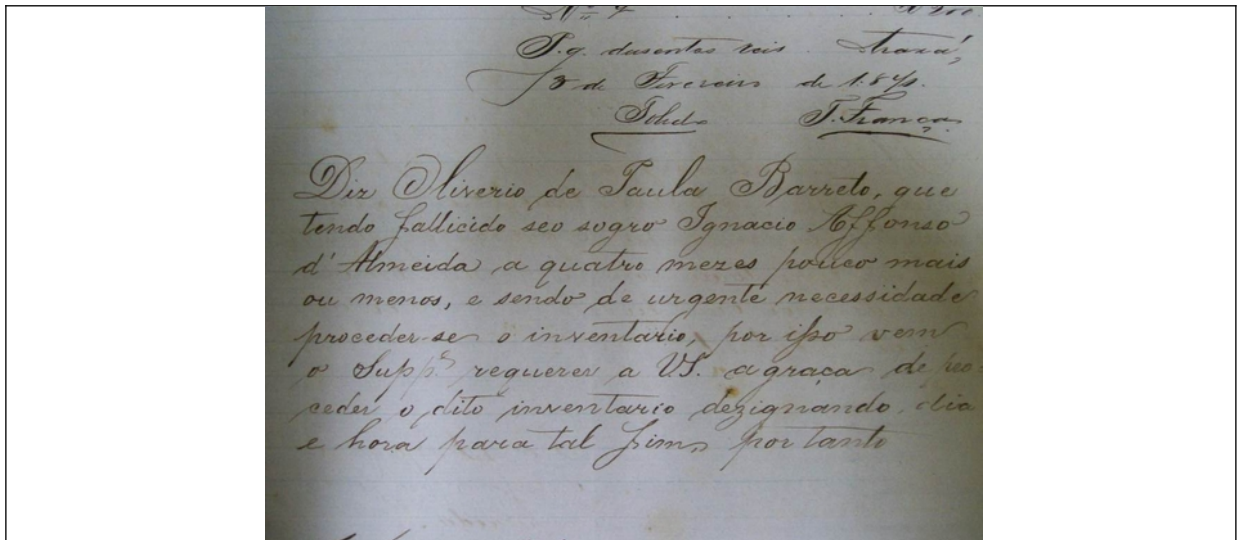 Nº 7 200
P.g. dusentos reis. Araxá,
3 de Fevereiro de 187
Toledo T. França
Diz Oliverio de Paula Barreto, que
tendo fallicido seo sogro Ignacio Affonso
d'Almeida a quatro mezes pouco mais
ou menos, e sendo de urgente necessidade
proceder-se o inventario, por isso vem
o Suppe requerer a VS. a graça de pro-
ceder o dito inventario dezignando, dia
e hora para tal fim, por tanto